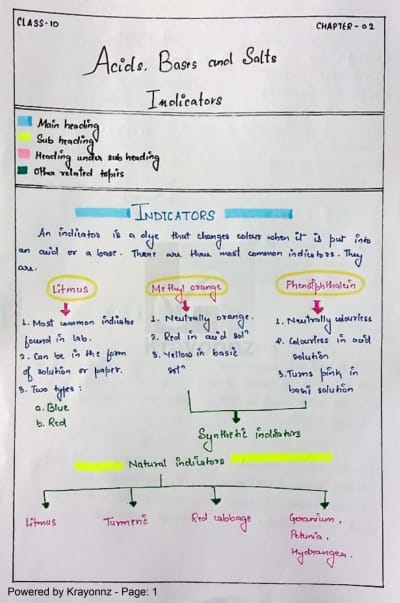 CLASS-10
CHAPTER-02
Acids, Bases and Salts
Indicators
Main heading
Sub heading
Heading under sub heading
Other related topics
INDICATORS
An indicator is a dye that changes colour when it is put into
an acid or a base. There are three most common indicators. They
are.
Litmus
Methyl orange
Phenolphthalein
1. Most common indicator
found in lab.
2. Can be in the form
of solution or paper.
3. Two types:
a. Blue
b. Red
1. Neutrally orange.
2. Red in acid solⁿ
3. Yellow in basic
solⁿ
1. Neutrally colourless
2. Colourless in acid
solution
3. Turns pink in
basic solution
Synthetic indicators
Natural indicators
Litmus
Turmeric
Red cabbage
Geranium,
Petunia,
Hydrangea.
Powered by Krayonnz - Page: 1